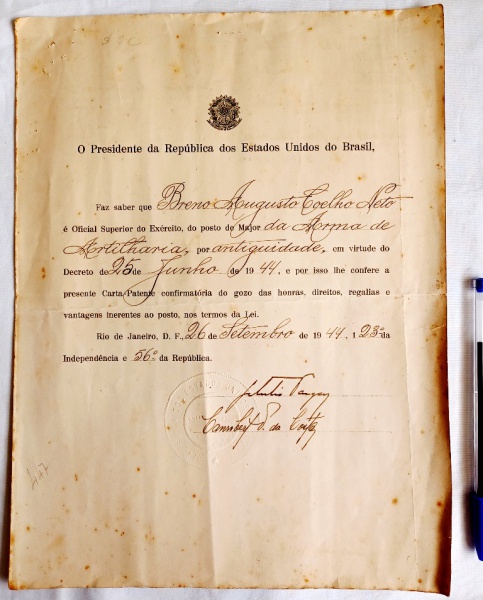 O Presidente da República dos Estados Unidos do Brasil,
Faz saber que Breno Augusto Coelho Neto
é Oficial Superior do Exército, do posto de Major da Arma de
Artilharia, por antiguidade, em virtude do
Decreto de 25 de Junho de 1944, e por isso lhe confere a
presente Carta Patente confirmatória do gozo das honras, direitos, regalias e
vantagens inerentes ao posto, nos termos da Lei.
Rio de Janeiro, D. F., 26 de Setembro de 1944, 123º da
Independência e 56º da República.
Getulio Vargas
Canrobert P. da Costa